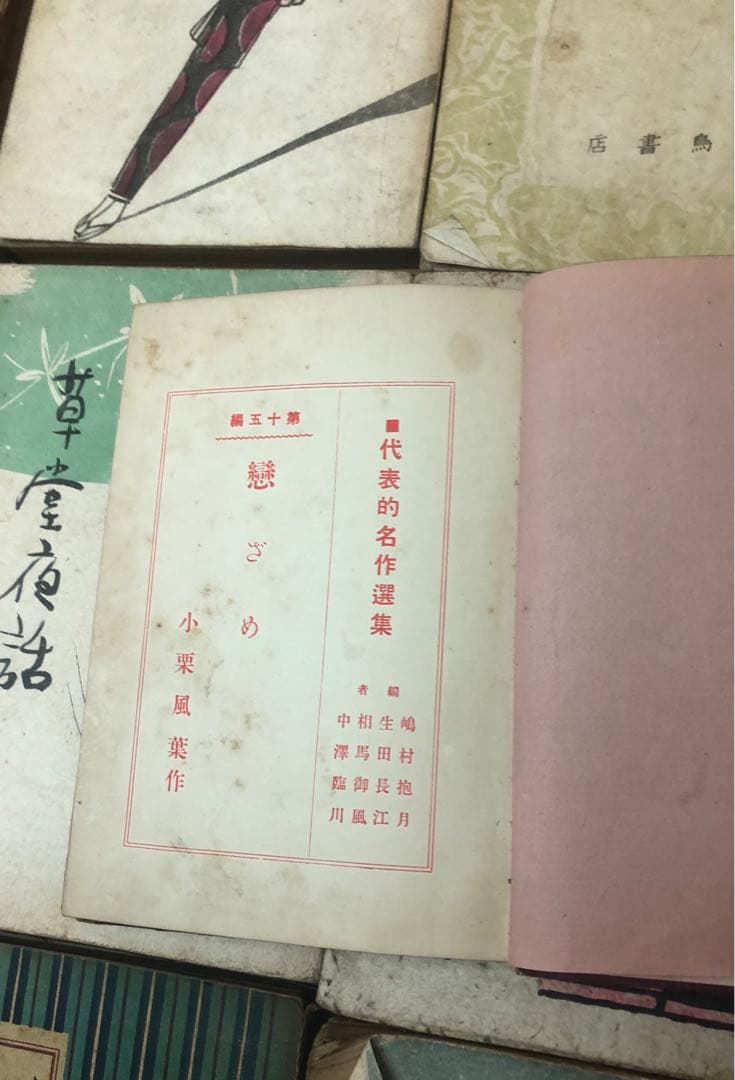 店書鳥
草堂夜話
■代表的名作選集
編者
嶋村抱月
生田長江
相馬御風
中澤臨川
第十五編
戀ざめ
小栗風葉作